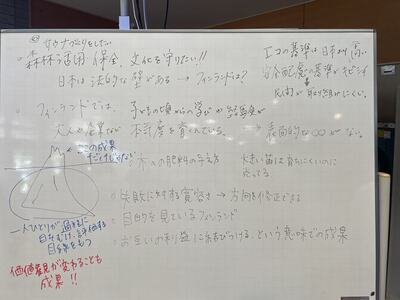 サウナづくりをしたい
森林活用、保全、文化を守りたい!!
日本は法的な壁がある → フィンランドは?
エコの基準は日本より高い
の基準がキビシイ
民間が取り組みにくい。
フィンランドでは、子どもの頃からの学びや経験が
大人や企業など を育くんでいる。
→ 表面的な∞がない。
ここの成果
木への肥料の与え方
大きい苗は育ちにくいのに
失敗に対する寛容さ → 方向を修正できる
目的を見ているフィンランド
お互いの利益に結びつける、という意味での成果
一人ひとりが過程に
目をむけ、評価する
目線をもつ
価値観が変わることも
成果!!